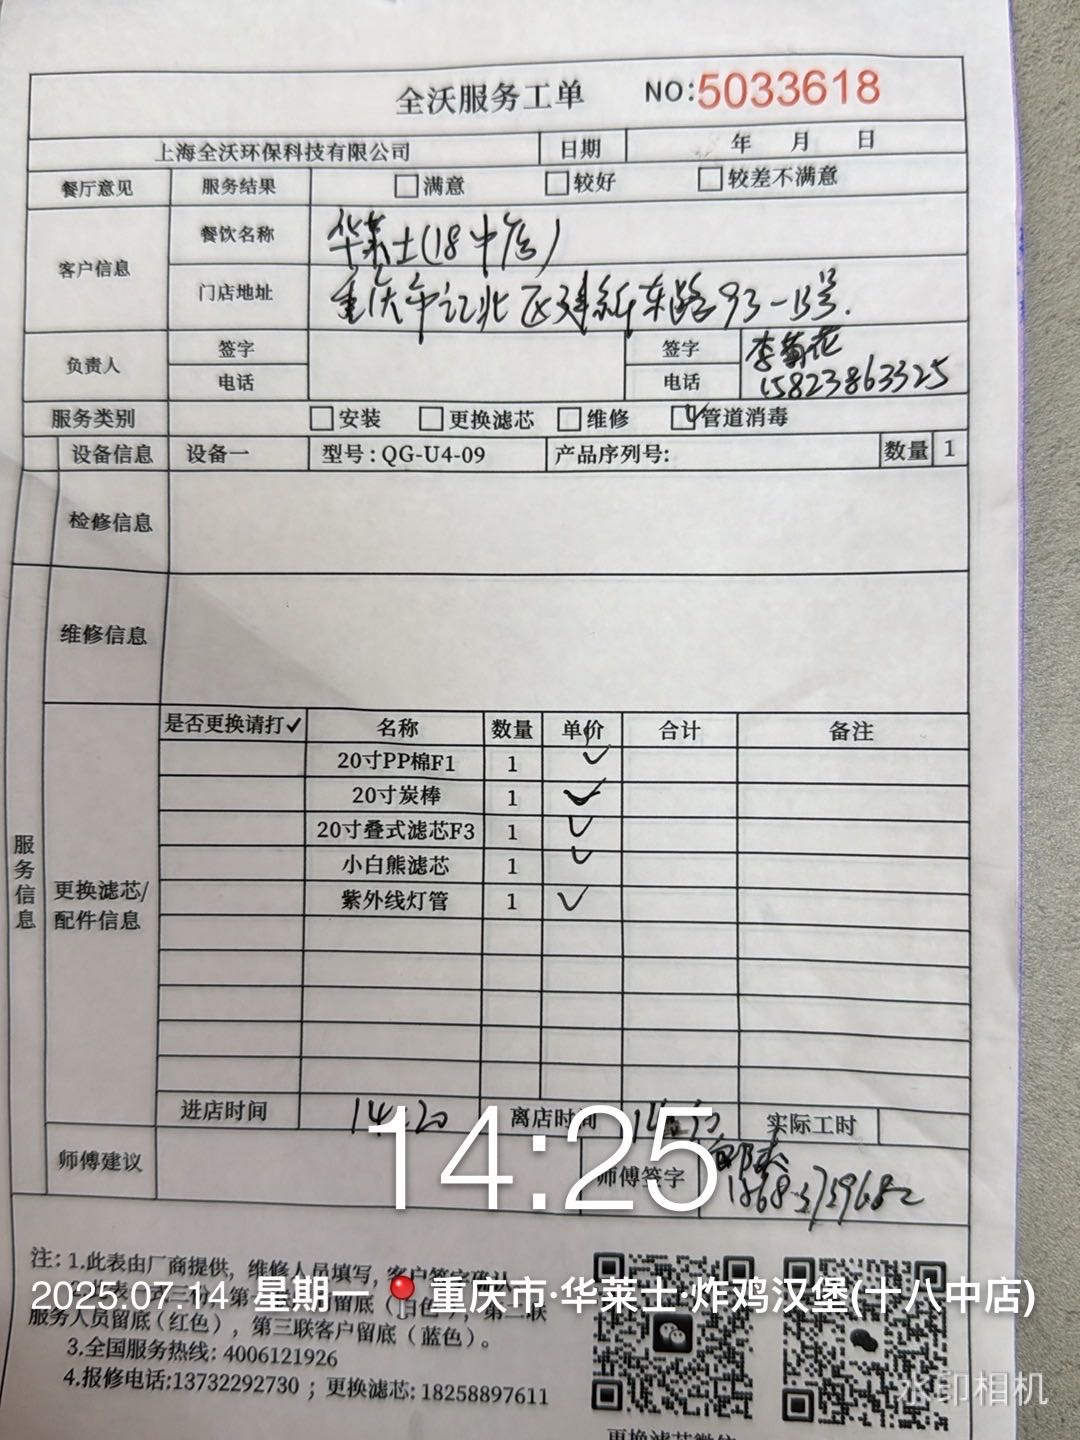 全沃服务工单 NO:5033618
上海全沃环保科技有限公司 日期 年 月 日
餐厅意见 服务结果 满意 较好 较差不满意
客户信息 餐饮名称 华莱士(18中店)
门店地址 重庆市江北区建新东路93-13号.
负责人 签字 签字 李菊花
电话 电话 15823863325
服务类别 安装 更换滤芯 维修 ✓管道消毒
设备信息 设备一 型号:QG-U4-09 产品序列号: 数量 1
检修信息
维修信息
服务信息
更换滤芯/
配件信息
是否更换请打✓ 名称 数量 单价 合计 备注
20寸PP棉F1 1 ✓
20寸炭棒 1 ✓
20寸叠式滤芯F3 1 ✓
小白熊滤芯 1 ✓
紫外线灯管 1 ✓
进店时间 14:20 离店时间 实际工时
14:25
师傅建议 师傅签字
注: 1.此表由厂商提供, 维修人员填写, 客户签字确认
2025.07.14 星期一 重庆市·华莱士·炸鸡汉堡(十八中店)
服务人员留底(红色), 第三联客户留底(蓝色)。
3.全国服务热线: 4006121926
4.报修电话:13732292730 ; 更换滤芯: 18258897611
水印相机